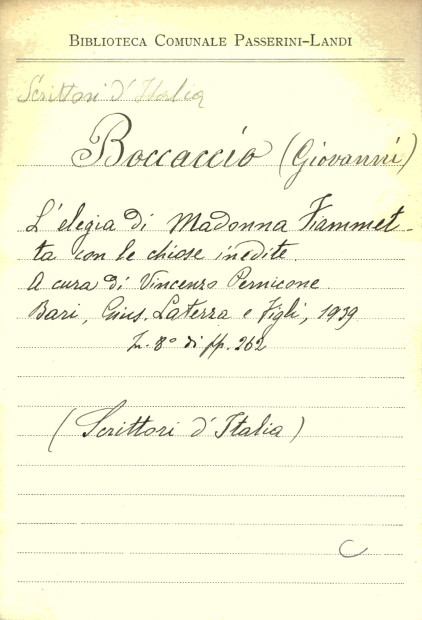 BIBLIOTECA COMUNALE PASSERINI-LANDI
Scrittori d'Italia
Boccaccio (Giovanni)
L'elegia di Madonna Fiammet-
ta con le chiose inedite.
A cura di Vincenzo Pernicone.
Bari, Gius. Laterza e Figli, 1939
In. 8° di pp. 262
(Scrittori d'Italia)
C